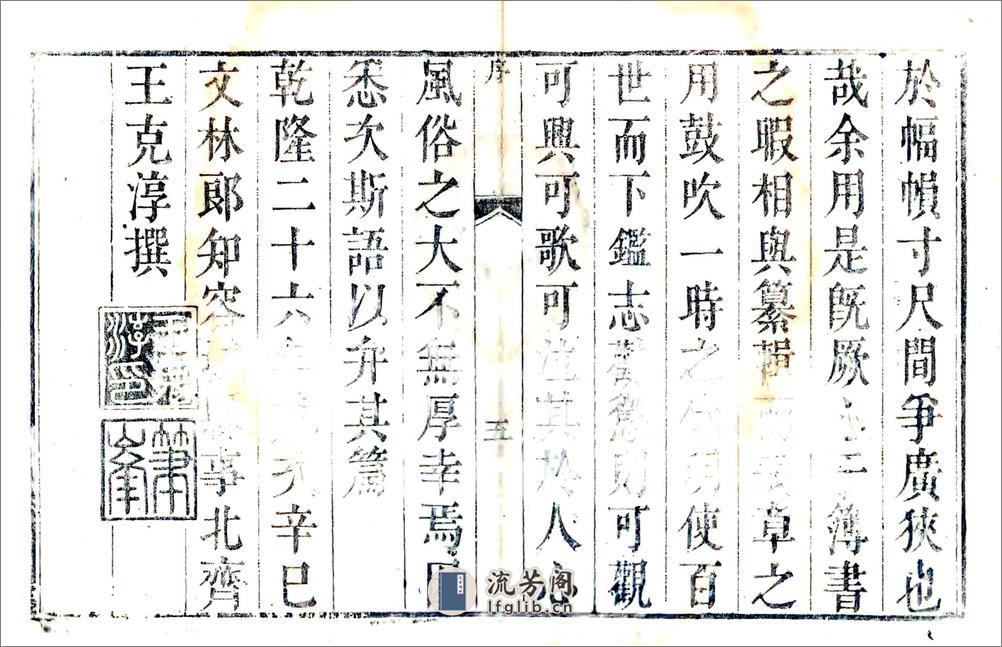 於幅幀寸尺間爭廣狹也
哉余用是既厥心于簿書
之暇相與纂輯章之
用鼓吹一時之休明使百
世而下鑑志勸懲則可觀
可興可歌可泣其於人心
序
五
風俗之大不無厚幸焉
悉次斯語以弁其篇
乾隆二十六年辛巳
文林郎知容縣事北齊
王克淳撰
流芳阁
lfglib.cn